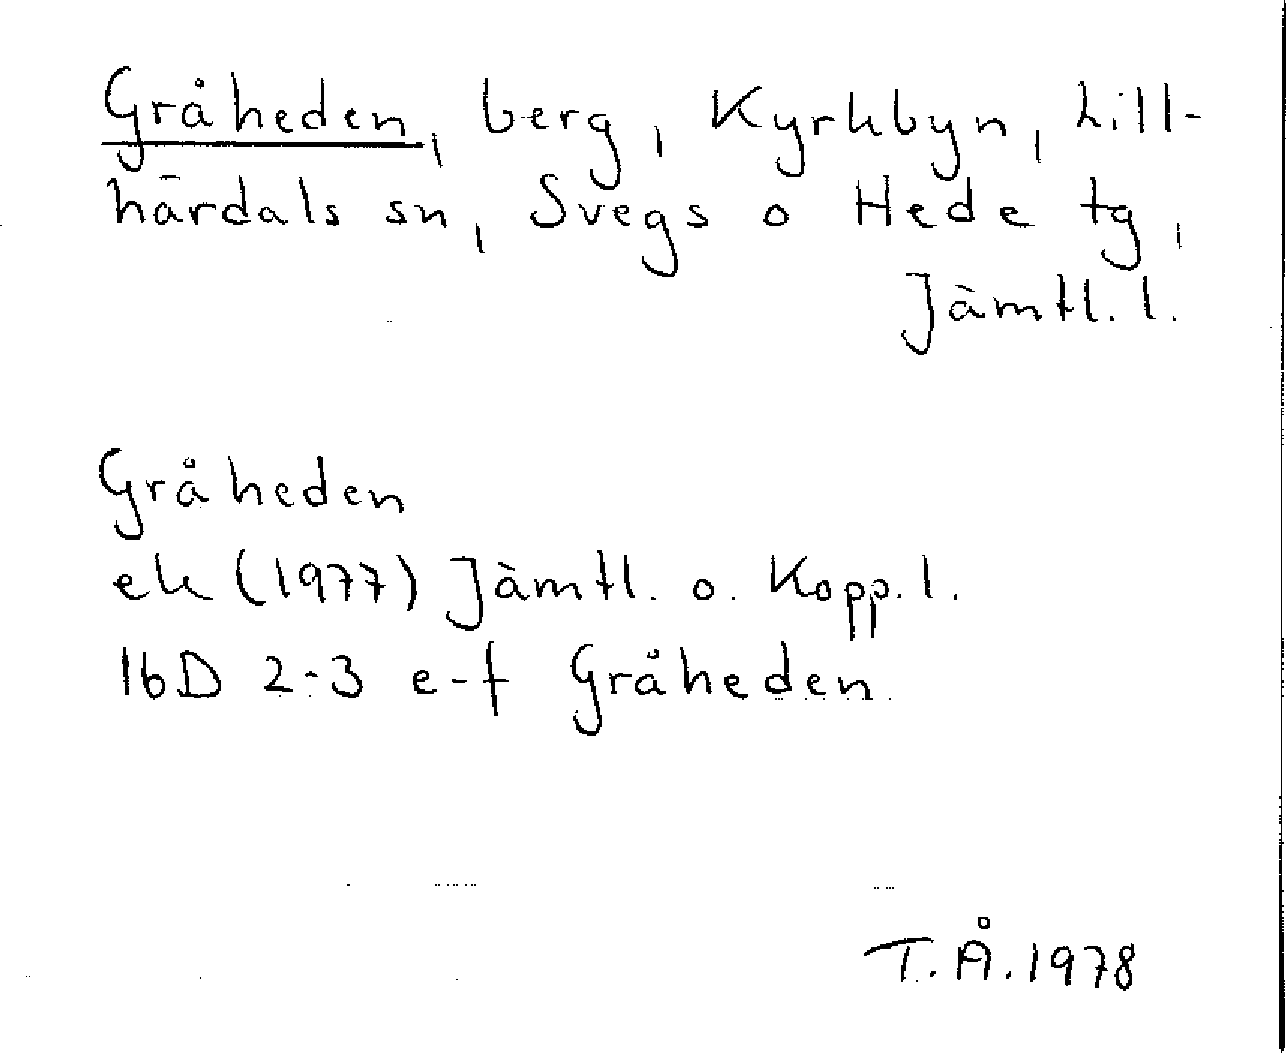 Gråheden, berg, Kyrkbyn, Lill-
härdals sn, Svegs o Hede tg,
Jämtl. l.
Gråheden
ek (1977) Jämtl. o. Kopp. l.
16D 2-3 e-f Gråheden
T.Å. 1978